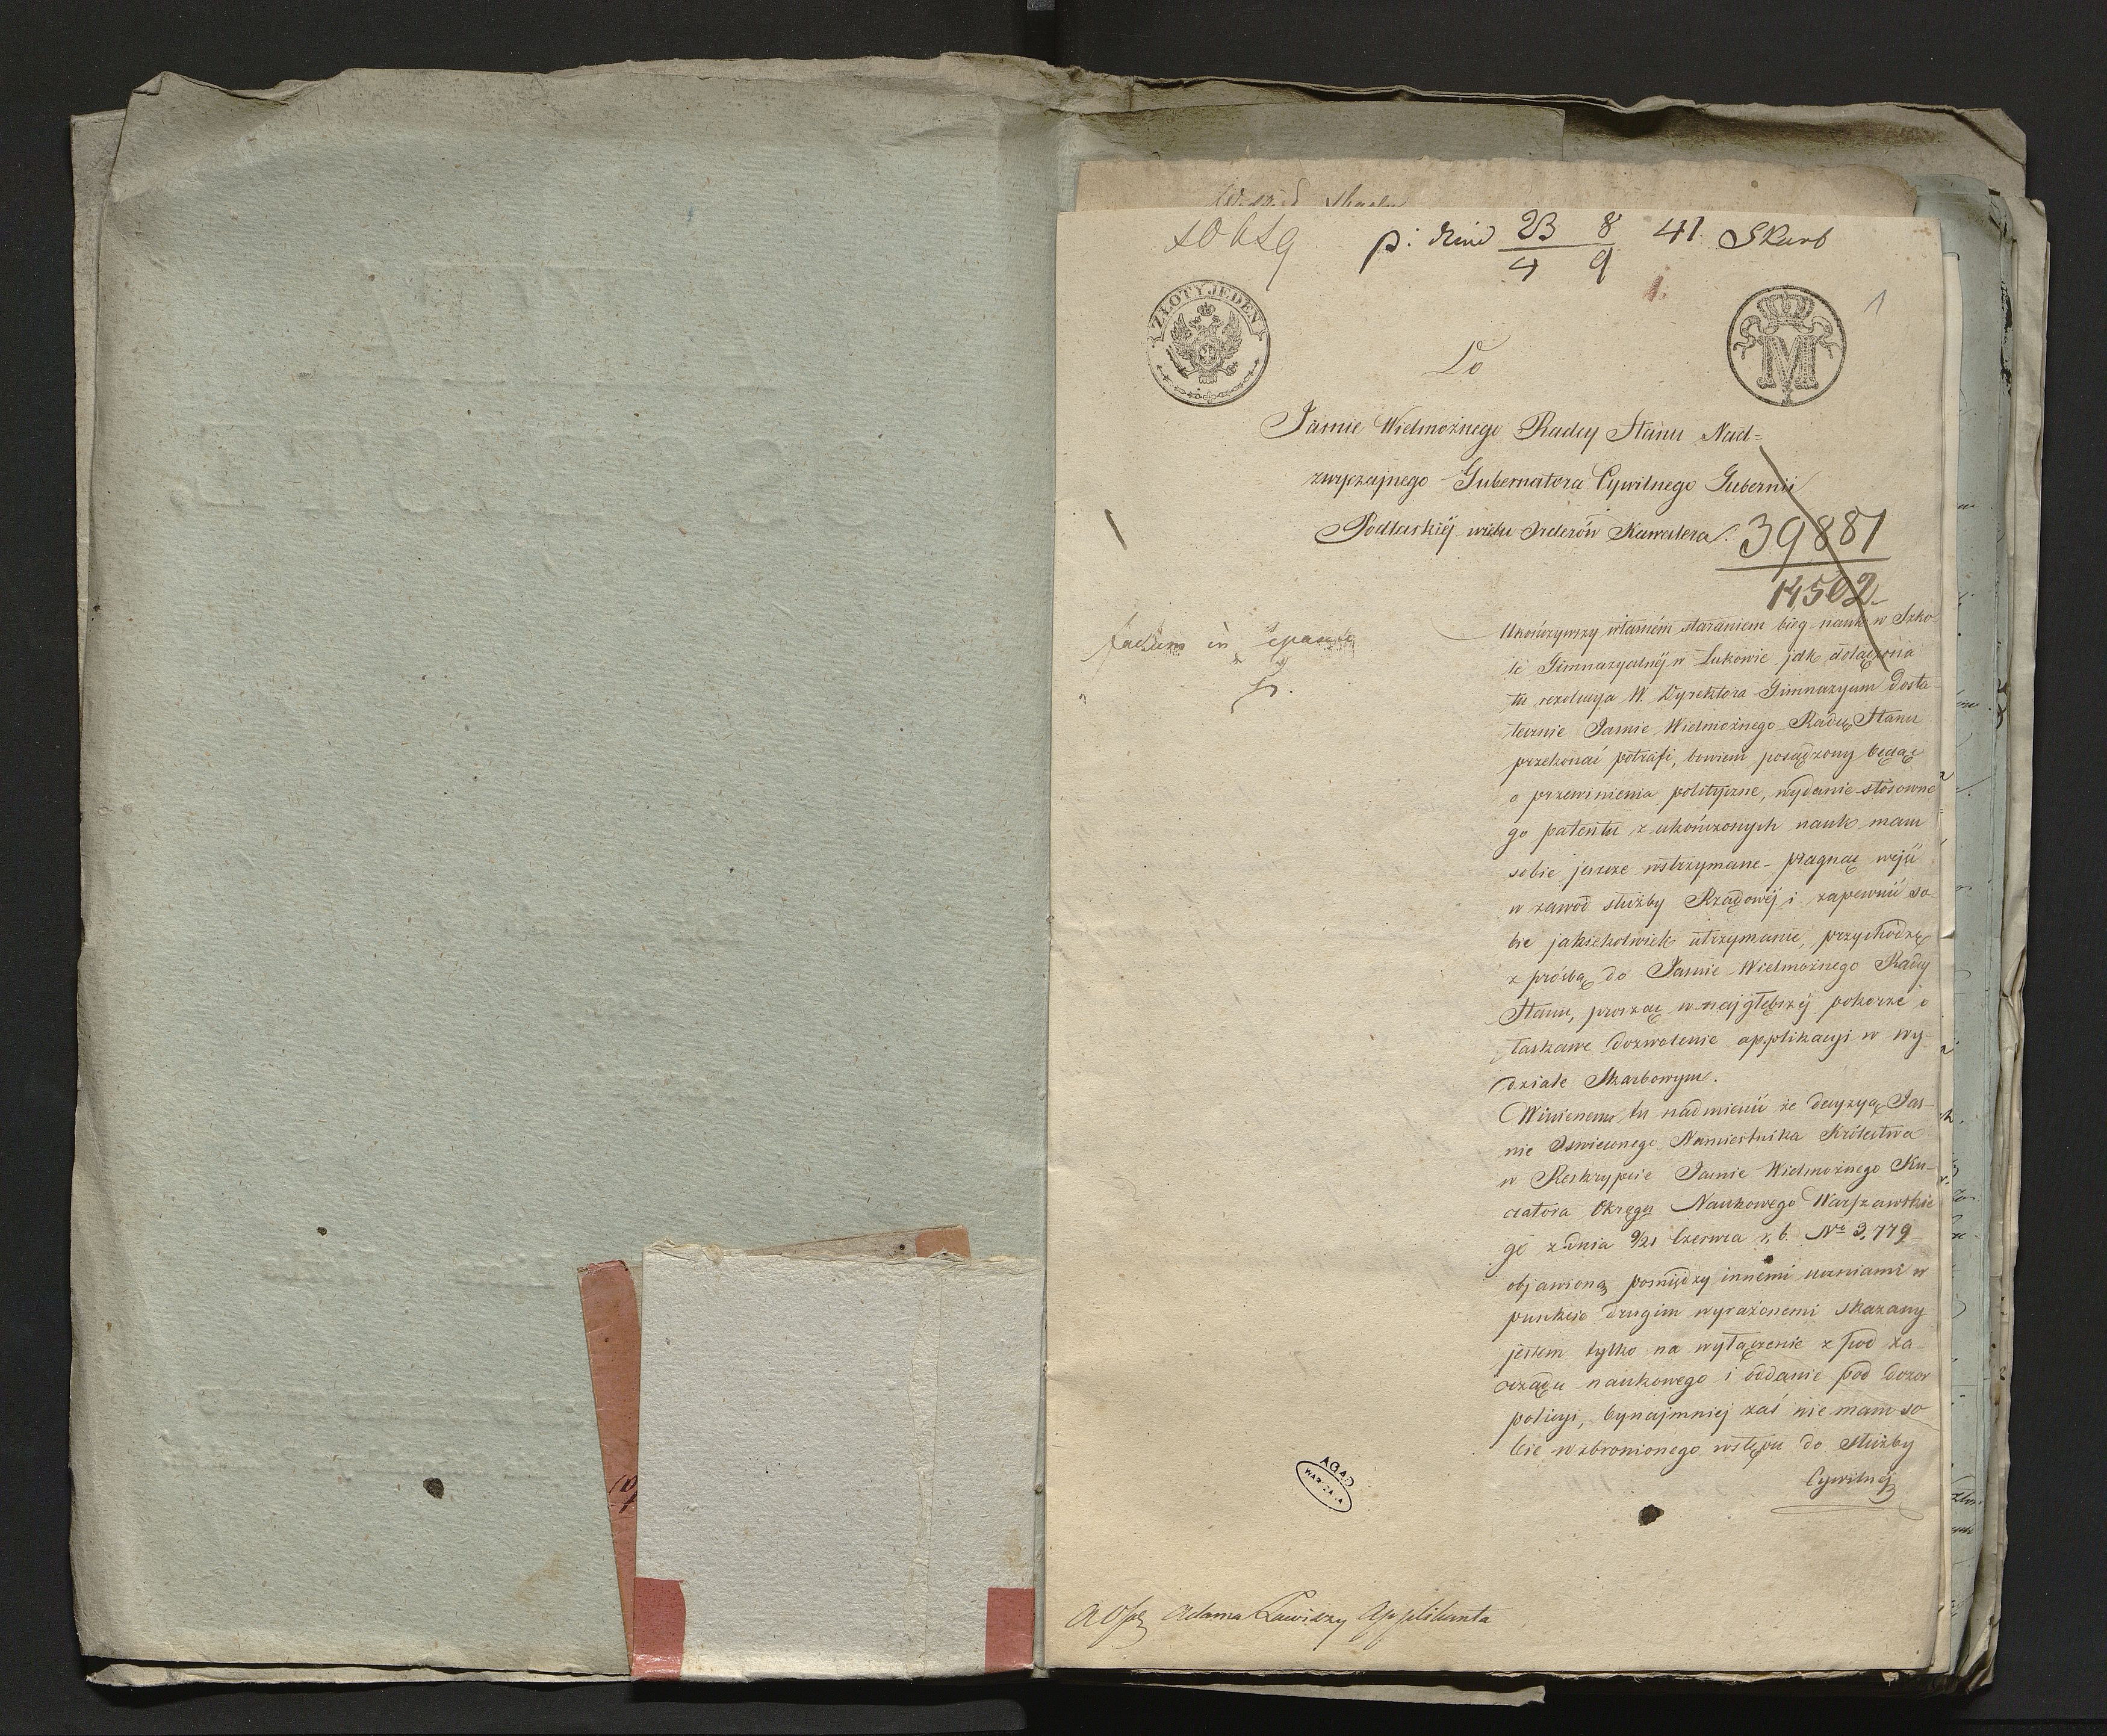 p: dnia 23/4 8/9 41 Skarb
1.
1
ZŁOTY JEDEN
M
Do
Jaśnie Wielmożnego Radcy Stanu Nad=
zwyczajnego Gubernatora Cywilnego Gubernii
Podlaskiéj wielu Orderów Kawalera.
39881
14502
factum in separato
Ukończywszy własném staraniem bieg nauk w Szko
le Gimnazyalnéj w Łukowie jak dołączona
tu rezolucya W. Dyrektora Gimnazyum dosta-
tecznie Jaśnie Wielmożnego Radcę Stanu
przekonać potrafi, bowiem posądzony będąc
o przewinienia polityczne, wydanie stósowne
go patentu z ukończonych nauk mam
sobie jeszcze wstrzymane - pragnąc wejść
w zawód służby Rządowéj i zapewnić so-
bie jakiekolwiek utrzymanie, przychodzę
z prośbą do Jaśnie Wielmożnego Radcy
Stanu, prosząc w najgłębszéj pokorze o
łaskawe dozwolenie applikacyi w wy-
dziale Skarbowym.
Winienem tu nadmienić że decyzyą Jaś-
nie Oświeconego Namiestnika Królestwa
w Reskrypcie Jaśnie Wielmożnego Ku-
ratora Okręgu Naukowego Warszawskie
go z dnia 9/21 Czerwca r. b. No 3,779
objawioną pomiędzy innemi uczniami w
punkcie drugim wyrażonemi skazany
jestem tylko na wyłączenie z pod za-
rządu naukowego i oddanie pod dozór
policyi, bynajmniej zaś nie mam so-
bie wzbronionego wstępu do służby
Cywilnéj
AGAD
WARSZAWA
Adama Zawiszy Applikanta